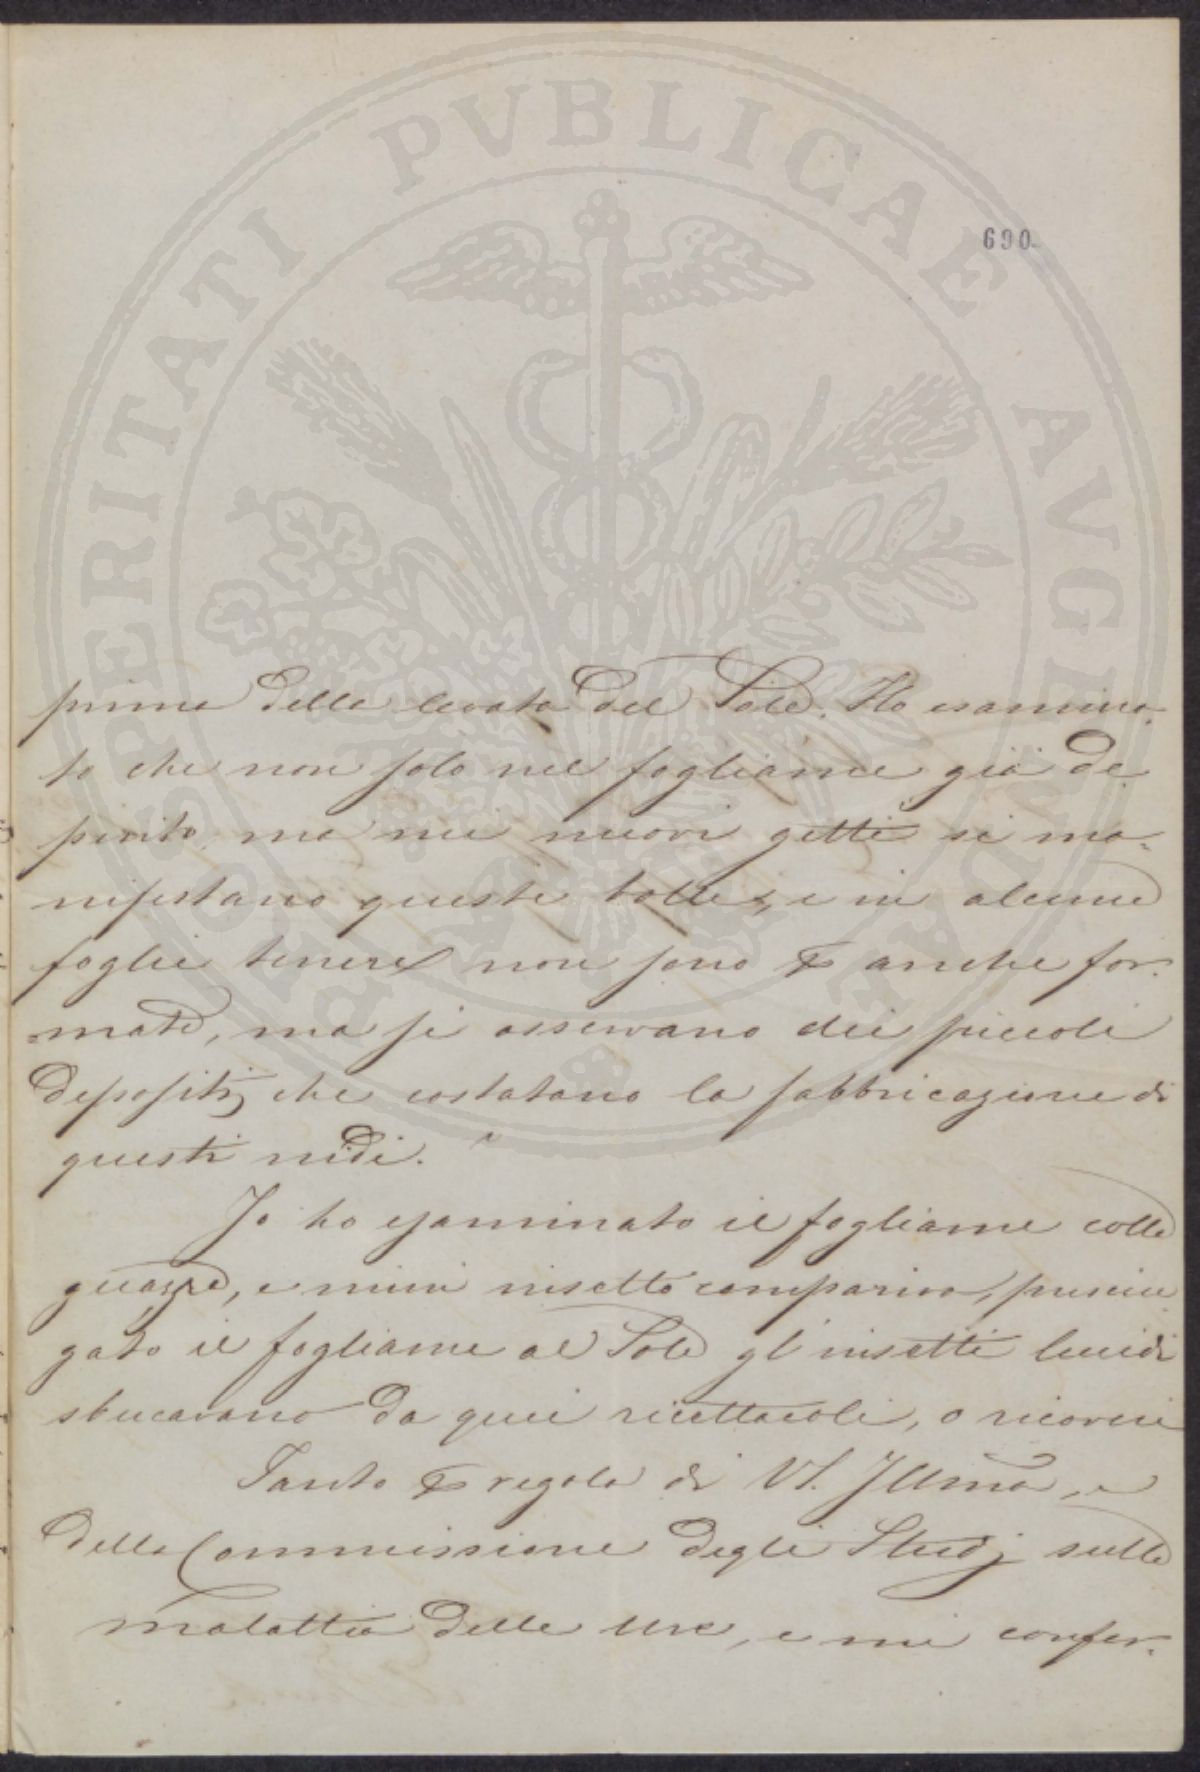 PROSPERITATI PVBLICAE AVGENDAE
690
prima della levata del Sole. Ho esamina
to che non solo nel fogliame già de
perito, ma nei nuovi getti si ma=
nifestano queste bolle, e in alcune
foglie tenere non sono per anche for=
mate, ma si osservano dei piccoli
depositj che costatano la fabbricazione di
questi nidi.
Io ho esaminato il fogliame colla
guazza, e niun insetto compariva, prosciu
gato il fogliame al Sole gl'insetti lucidi
sbucavano da quei ricettacoli, o ricoveri
Tanto per regola di VS. Illma, e
della Commissione degli Studj sulla
malattia delle Uve, e mi confer=